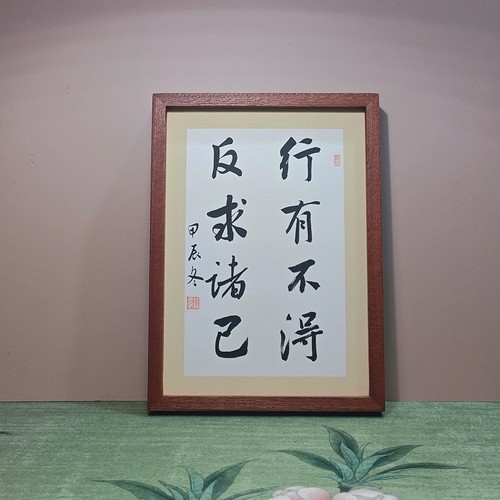 行有不得
反求诸己
甲辰冬